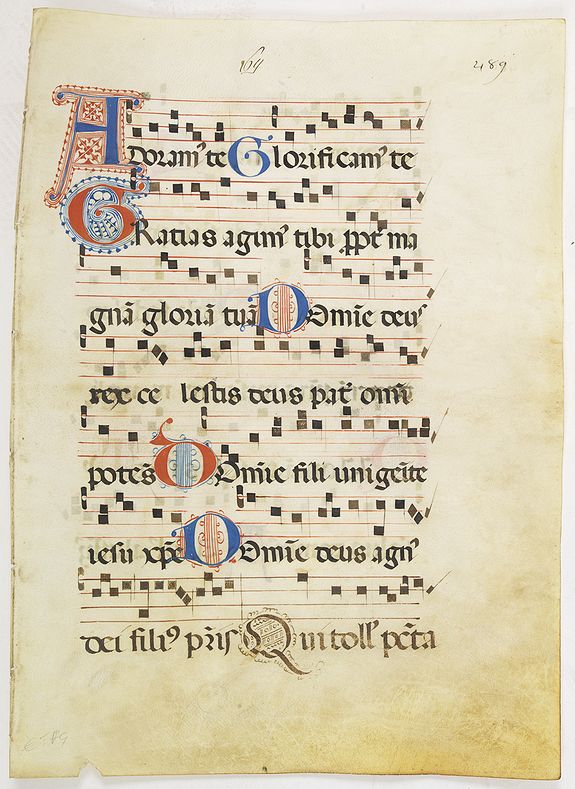 164 489
Adoram' te Glorificam' te
GRatias agim' tibi ꝓpt̃ ma
gnã gloriã tuã DOmiñe deus
rex ce lestis deus pat̃ omni
potẽs DOmiñe fili unigeĩte
iesu xp̃e DOmiñe deus agn'
dei fili' pr̃is Qui toll' pc̃ta